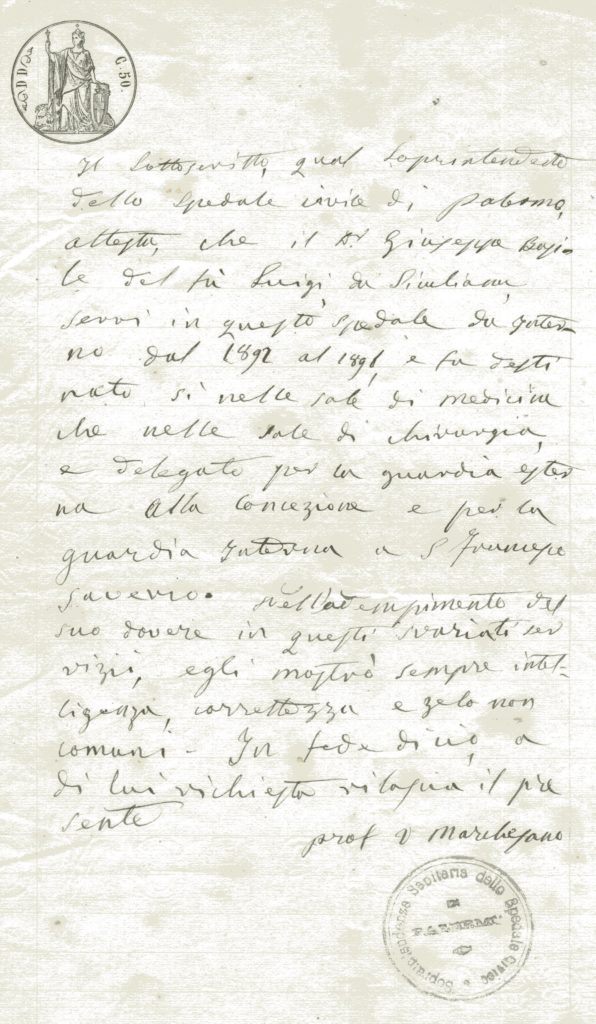 C. 50.
Il Sottoscritto, qual Soprintendente
dello Spedale Civico di Palermo,
attesta, che il Dr Giuseppe Basi-
le del fù Luigi da Siculiana,
servì in questo spedale da Inter-
no dal 1892 al 1896, e fu desti
nato si nelle sale di medicina
che nelle sale di chirurgia,
e delegato per la guardia ester
na alla Concezione e per la
guardia Interna a S Francesco
Saverio. Nell'adempimento del
suo dovere in questi svariati ser
vizii, egli mostrò sempre intel-
ligenza, correttezza e zelo non
comuni - In fede di ciò, a
di lui richiesta rilascia il pre
sente
prof V Marchesano
Soprintendenza Sanitaria dello Spedale Civico
DI
PALERMO